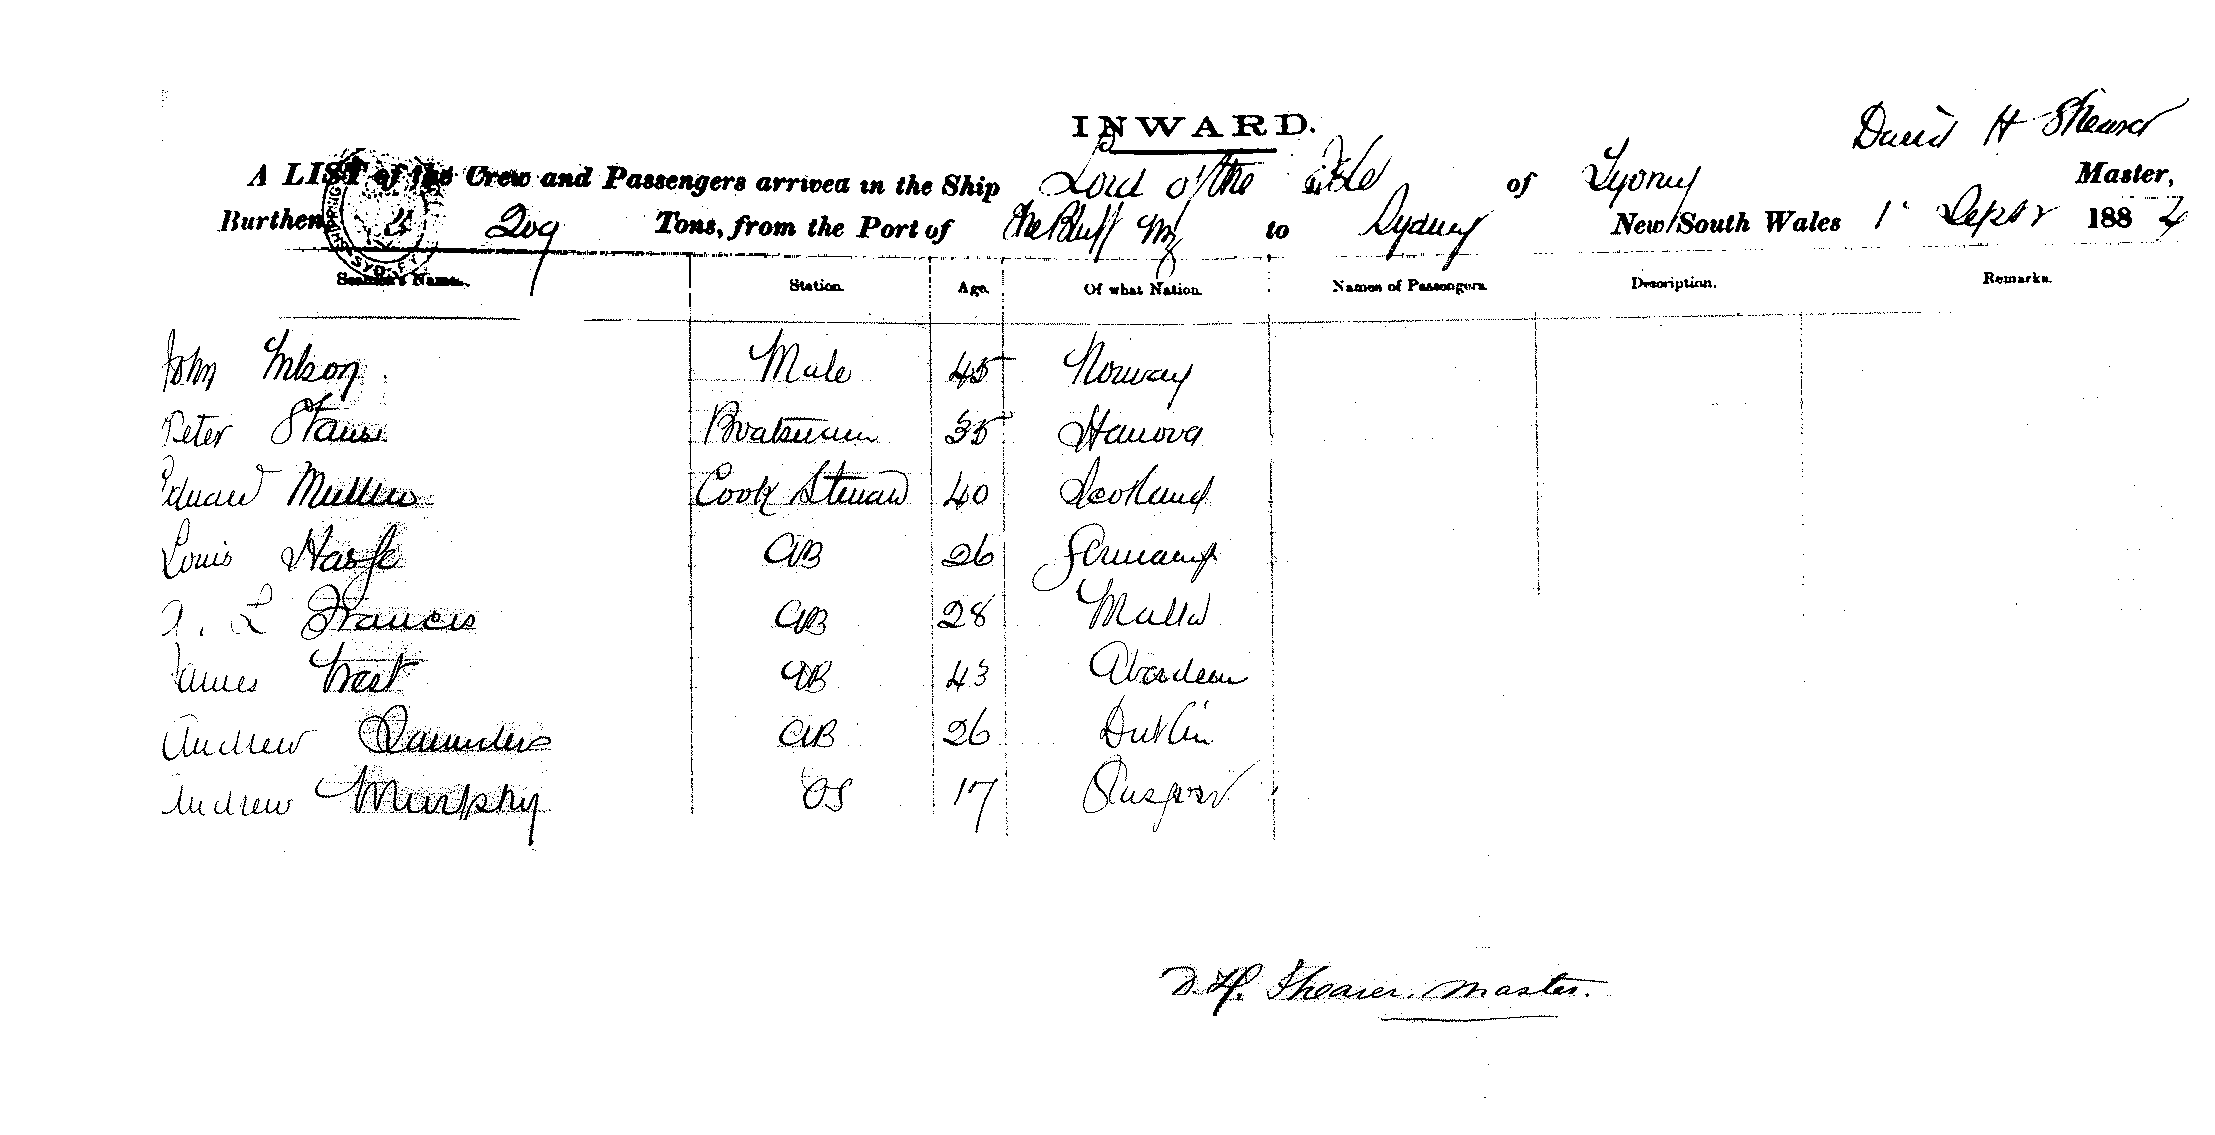 INWARD.
David H Shearer
A LIST of the Crew and Passengers arrived in the Ship Lord o' the Isle of Sydney Master,
Burthen 209 Tons, from the Port of The Bluff NZ to Sydney New South Wales 1 Septbr 1882
Seaman's Name. Station. Age. Of what Nation. Names of Passengers. Description. Remarks.
John Nilson Mate 45 Norway
Peter 35 Hanova
Edward Muller Cook Steward 40 Scotland
Louis AB 26 Germany
A. L Francis AB 28 Malta
James West AB 43 Aberdeen
Andrew Saunders AB 26 Dublin
Andrew Murphy OS 17
D. H. Shearer. Master.